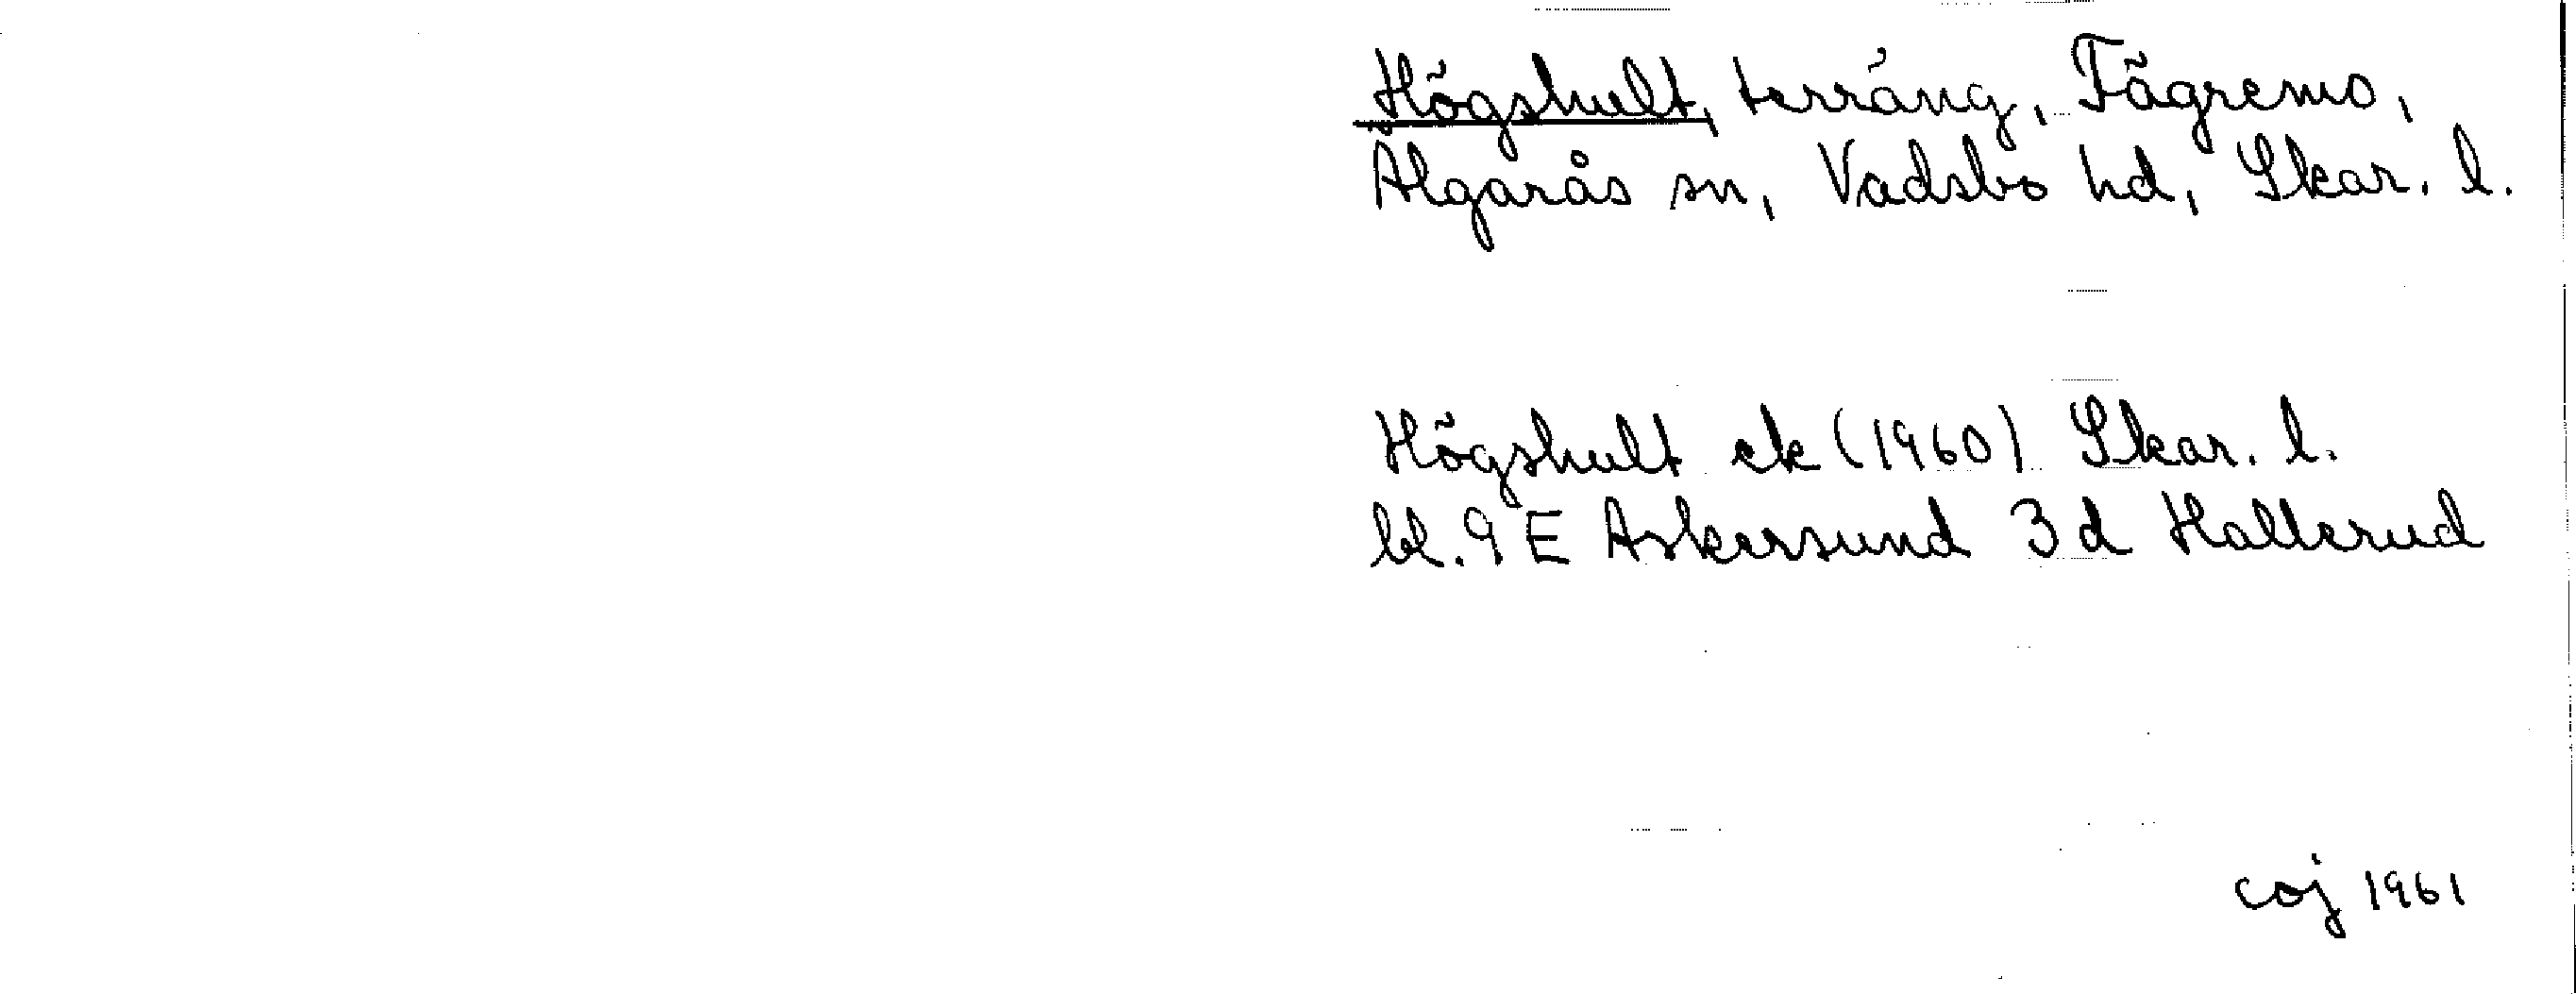 Högshult, terräng, Fägremo,
Älgarås sn, Vadsbo hd, Skar. l.
Högshult ek (1960) Skar. l.
bl. 9 E Askersund 3 d Hallerud
coj 1961